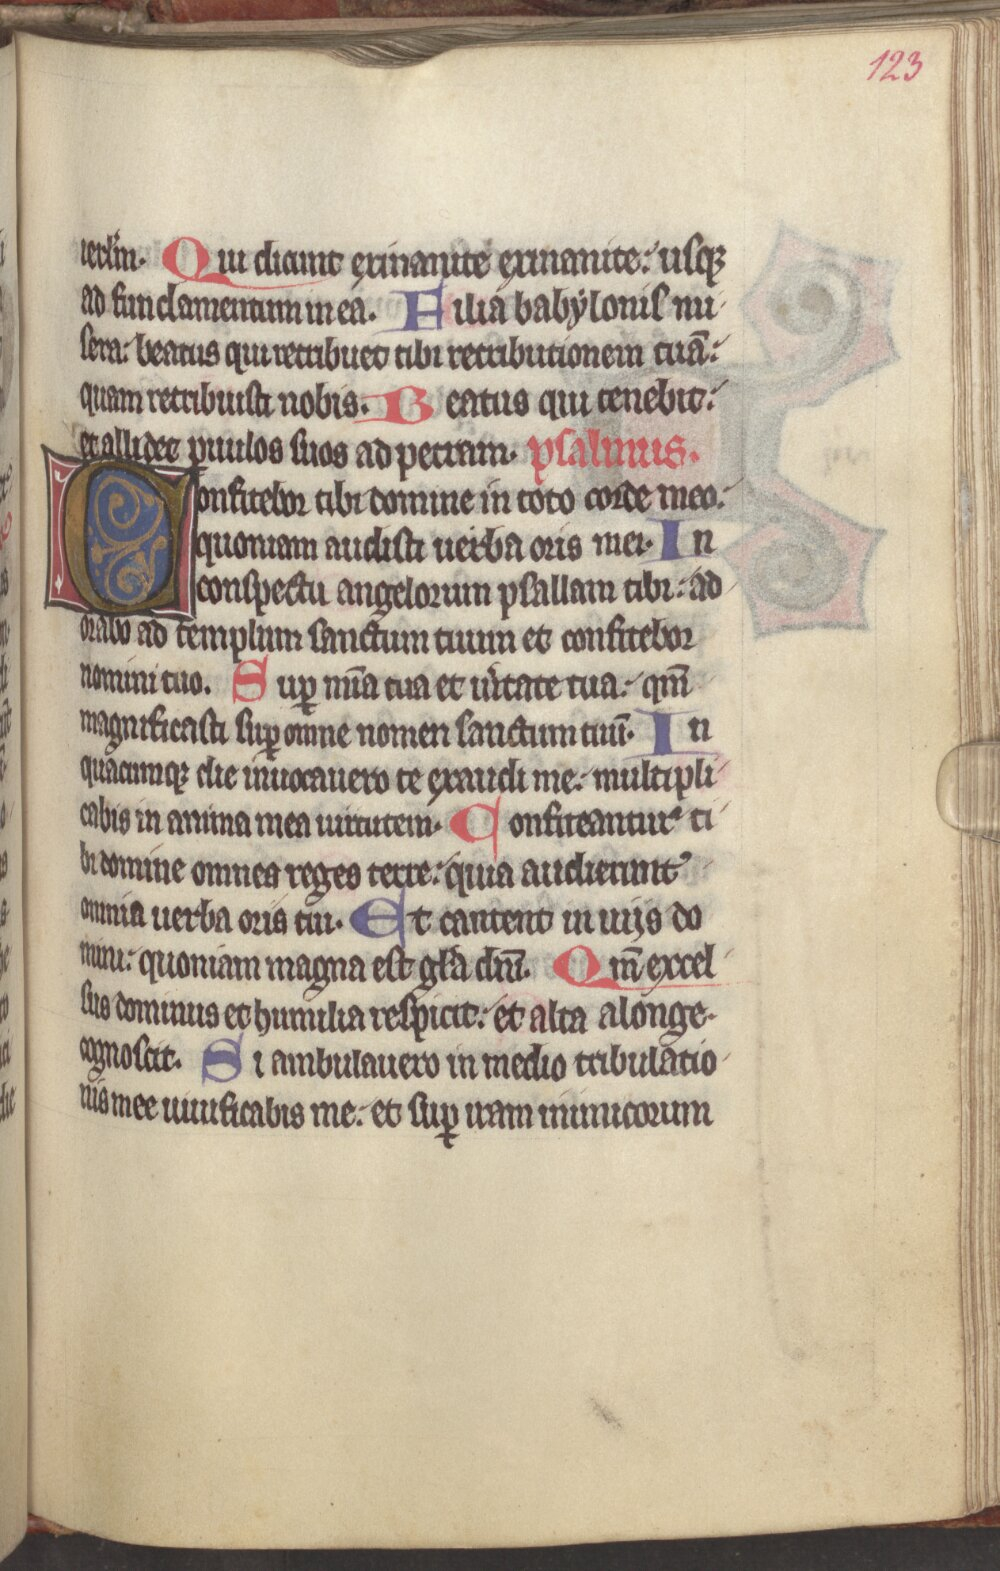 123
ierl̅m. Qui dicunt exinanite exinanite: usqꝫ
ad fundamentum in ea. Filia babylonis mi
sera: beatus qui retribuet tibi retributionem tuā:
quam retribuisti nobis. Beatus qui tenebit:
et allidet pruulos suos ad petram. psalmus.
Confitebor tibi domine in toto corde meo:
quoniam audisti uerba oris mei. In
conspectu angelorum psallam tibi: ad
orabo ad templum sanctum tuum et confitebor
nomini tuo. Sup̲ mīa tua et u̅itate tua: qm̅
magnificasti sup̲ omne nomen sanctum tuū. In
quacumqꝫ die inuocauero te exaudi me: multipli
cabis in anima mea uirtutem. Confiteantur ti
bi domine omnes reges terre: quia audierunt
omnia uerba oris tui. Et cantent in uijs do
mini: quoniam magna est gl̅a dn̅i. Qm̅ excel
sus dominus et humilia respicit: et alta alonge
cognoscit. Si ambulauero in medio tribulatio
nis mee uiuificabis me: et sup̲ iram inimicorum